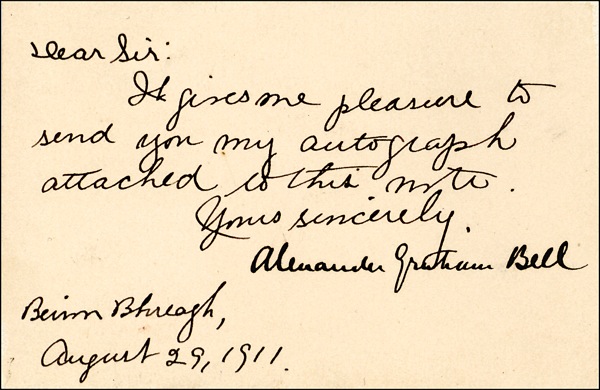 Dear Sir:
It gives me pleasure to
send you my autograph
attached to this note.
Yours sincerely.
Alexander Graham Bell
Beinn Bhreagh,
August 29, 1911.